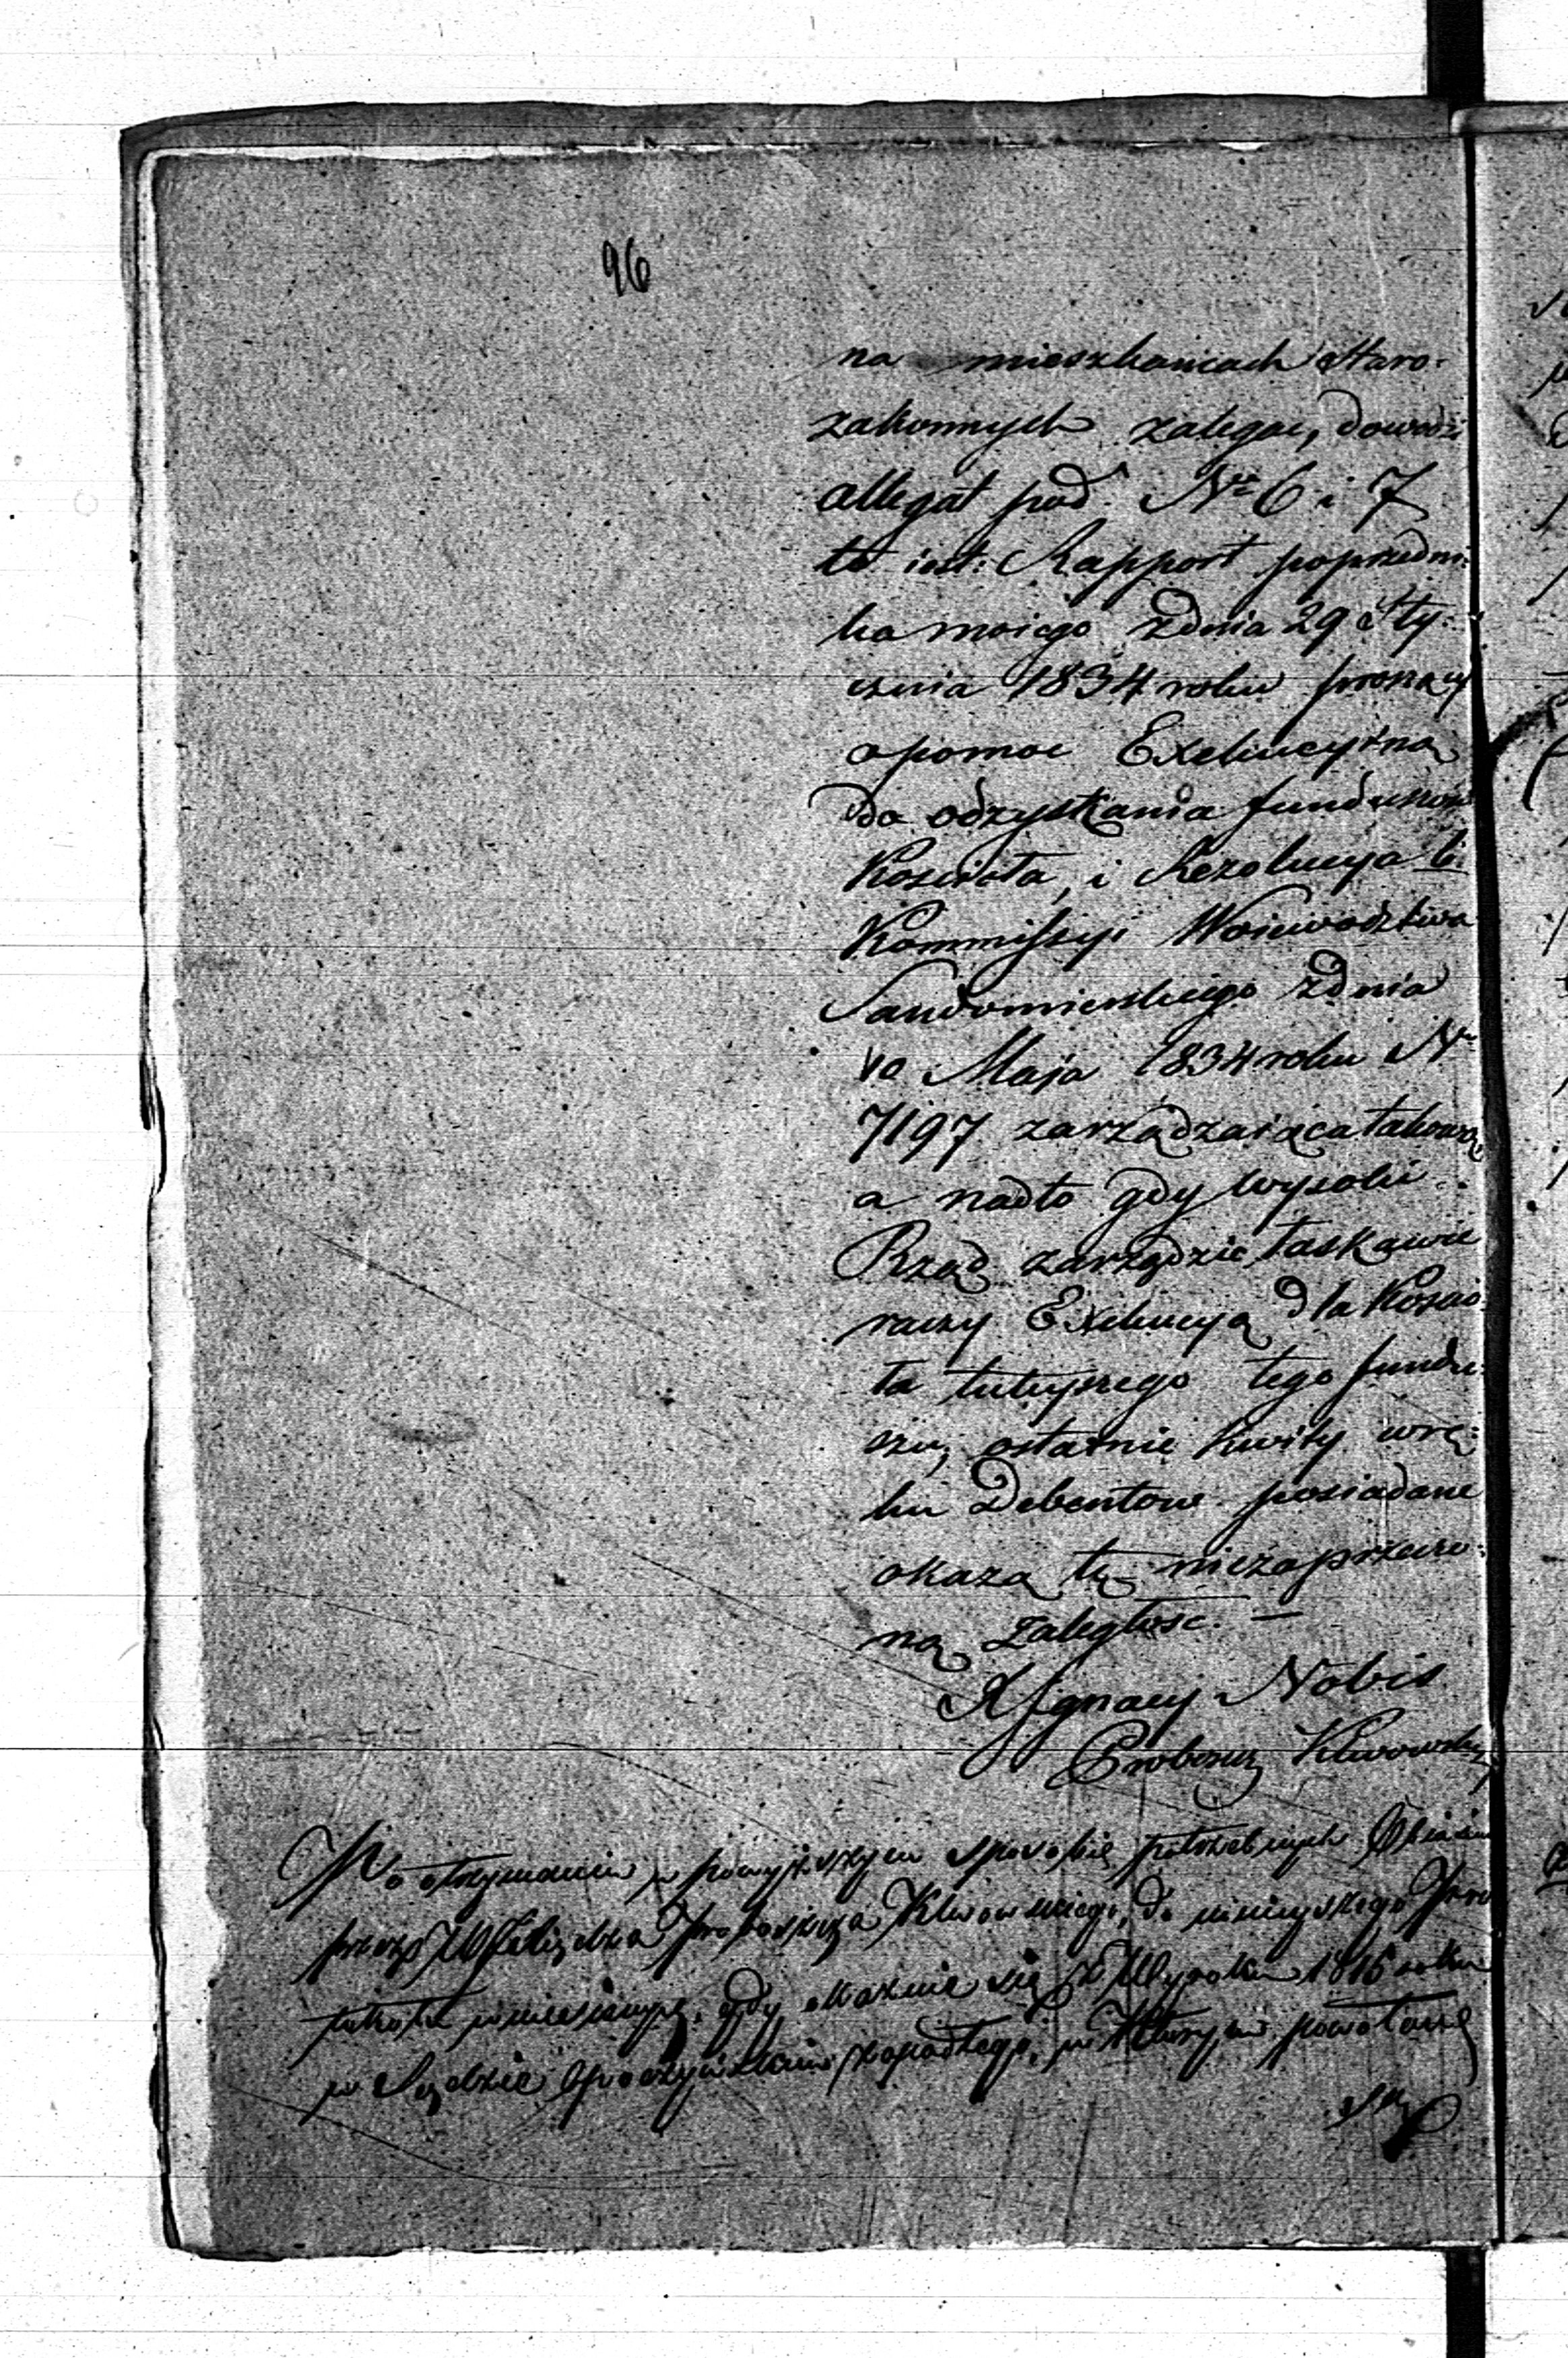 96
na mieszkancach Staro-
zakonnych zalegac, dowodzi
allegat pod Nro 6 i 7
to iest: Rapport poprzedni-
ka moiego z dnia 29 Sty-
cznia 1834 roku proszący
o pomoc Exekucyiną
do odzyskania funduszow
Koscioła, i Rezolucya b:
Kommissyi Woiewodztwa
Sandomierskiego z dnia
10 Maja 1834 roku Nr
7197 zarządzaiąca takową,
a nadto gdy wysoki
Rząd zarządzic łaskawie
raczy Exekucyą dla Koscio-
ła tuteyszego tego fundu-
szu, ostatnie kwity w rę-
ku Debentow posiadane
okażą tę niezaprzeczo-
ną zaległosc. —
X Ignacy Nobis
Proboszcz Klwowski
Po otrzymaniu w powyższym sposobie potrzebnych Obiaśnień
przez W Xiędza Proboszcza Klwowskiego, do ninieyszego Pro-
tokułu wniesionych, gdy okazuie się z Wyroku 1816 roku
w Sądzie Opoczyńskim zapadłego, w którym powołane